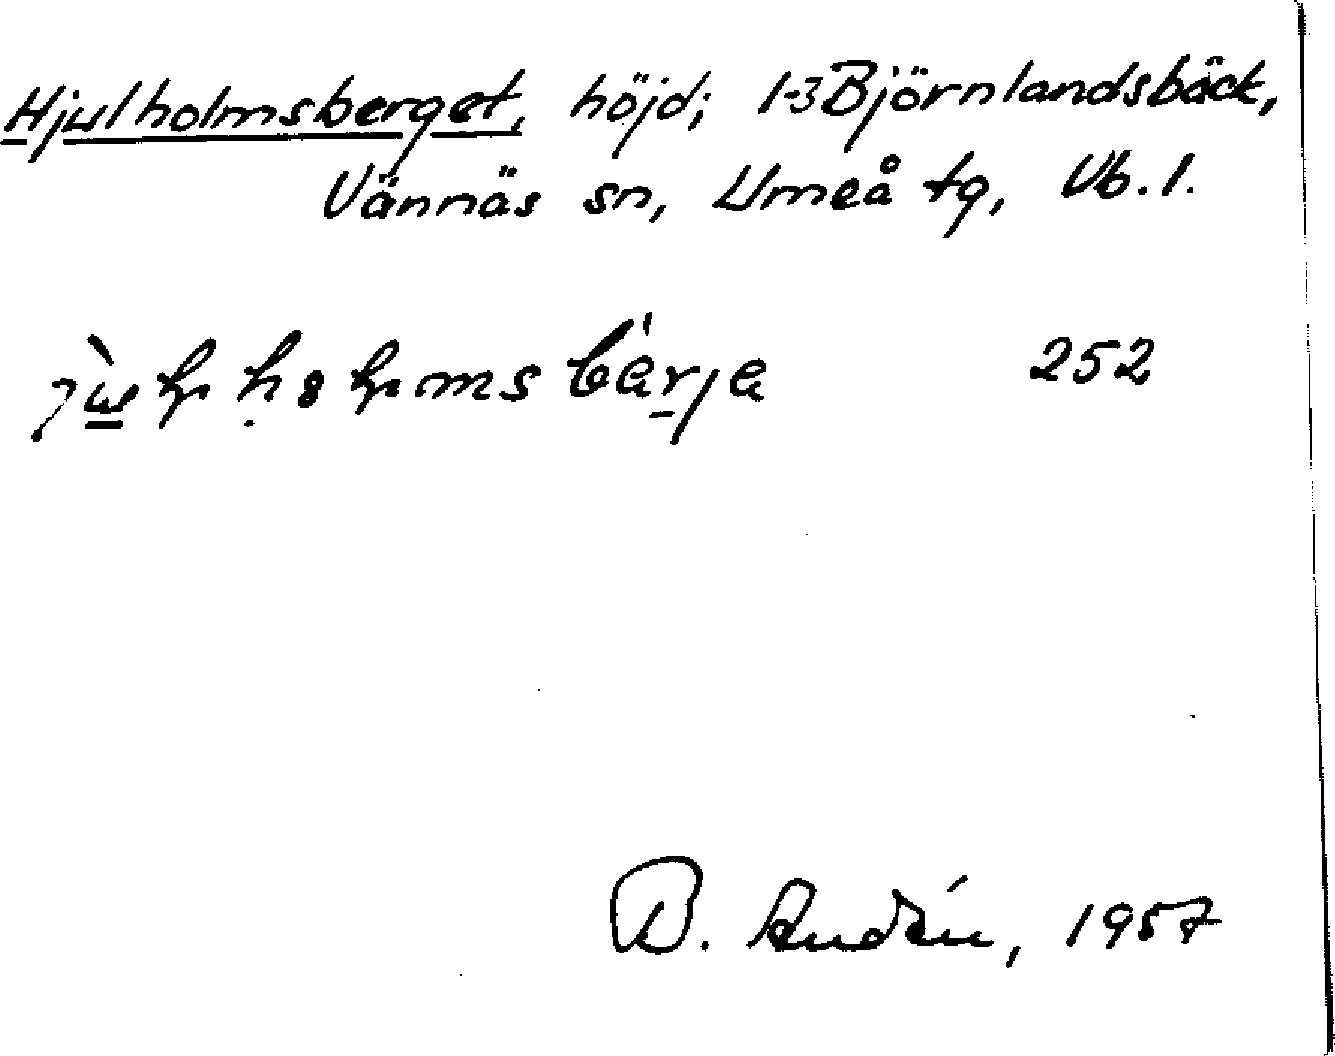 Hjulholmsberget, höjd; 1-3 Björnlandsbäck,
Vännäs sn, Umeå tg, Vb. l.
252
B. Audén, 1957